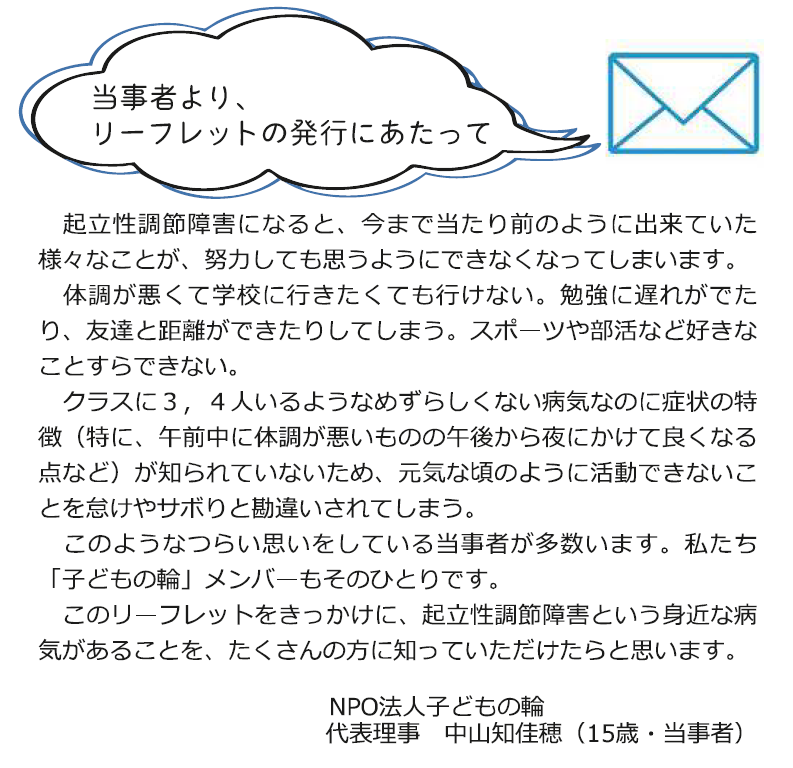 当事者より、
リーフレットの発行にあたって
　起立性調節障害になると、今まで当たり前のように出来ていた
様々なことが、努力しても思うようにできなくなってしまいます。
　体調が悪くて学校に行きたくても行けない。勉強に遅れがでた
り、友達と距離ができたりしてしまう。スポーツや部活など好きな
ことすらできない。
　クラスに３，４人いるようなめずらしくない病気なのに症状の特
徴（特に、午前中に体調が悪いものの午後から夜にかけて良くなる
点など）が知られていないため、元気な頃のように活動できないこ
とを怠けやサボりと勘違いされてしまう。
　このようなつらい思いをしている当事者が多数います。私たち
「子どもの輪」メンバーもそのひとりです。
　このリーフレットをきっかけに、起立性調節障害という身近な病
気があることを、たくさんの方に知っていただけたらと思います。
NPO法人子どもの輪
代表理事　中山知佳穂（15歳・当事者）